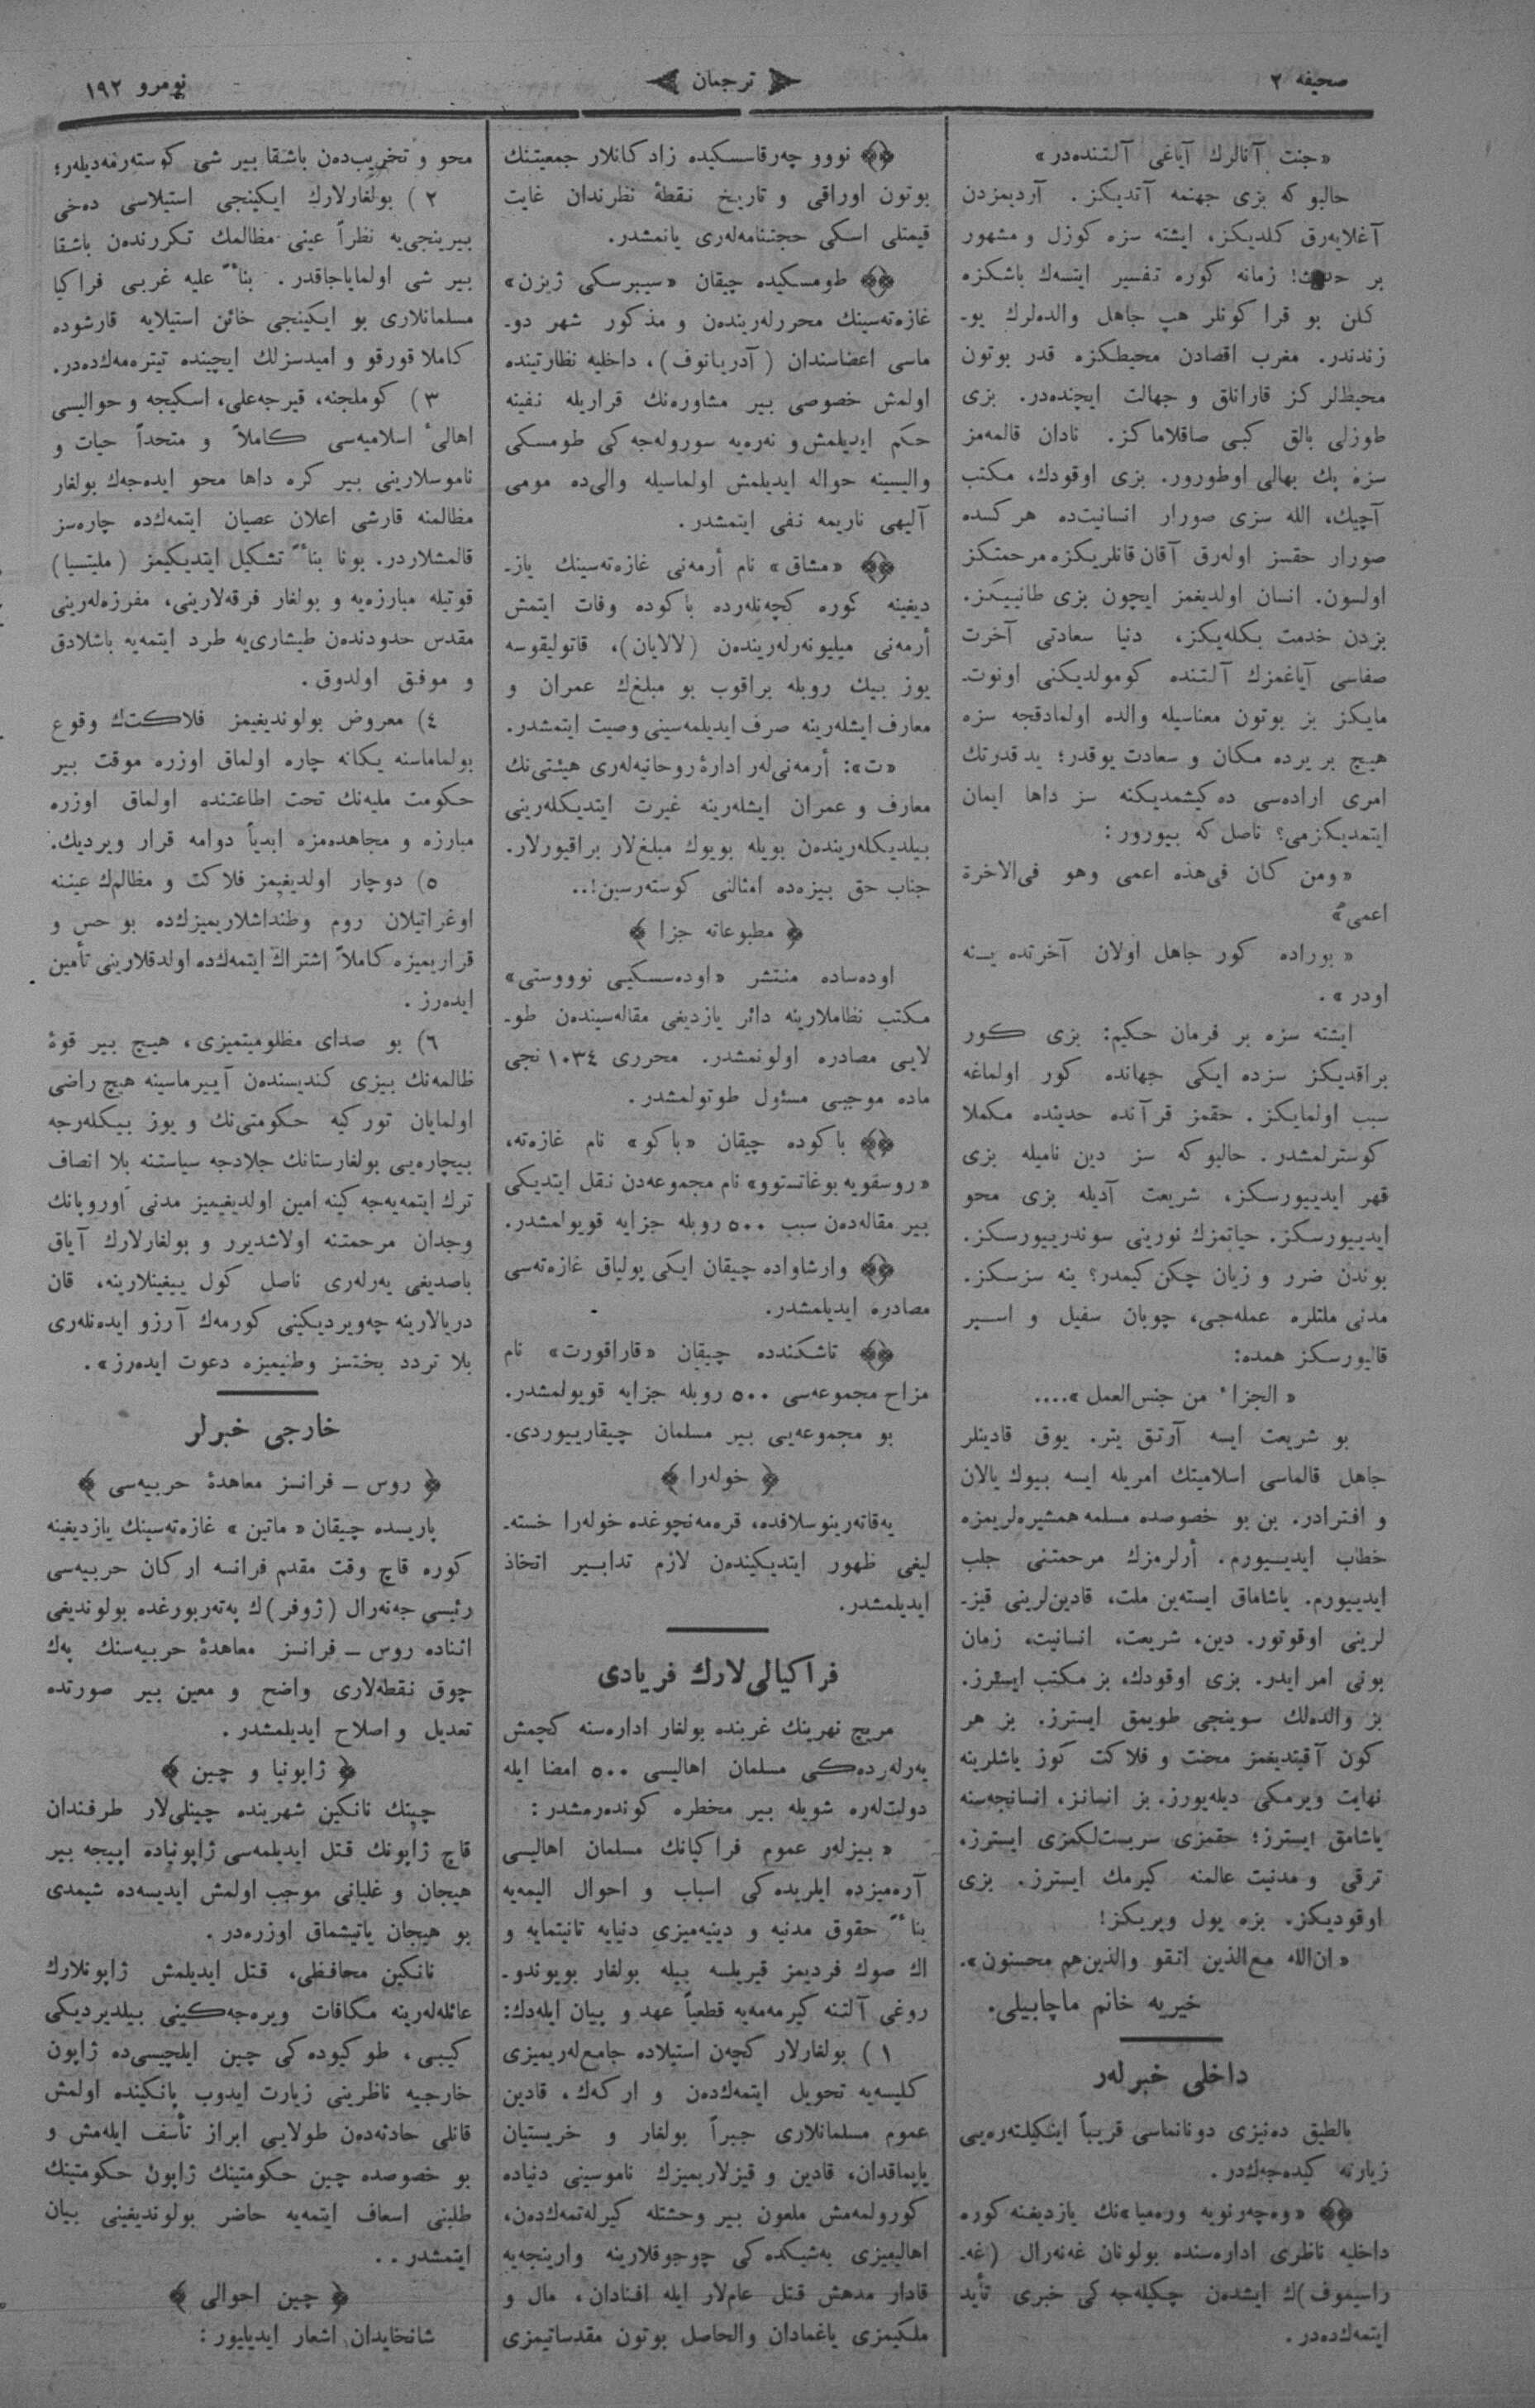 صحيفه ٢
ترجمان
نومرو ١٩٢
«جنت آنالرك آياغی آلتنده‌در»
حالبو كه بزی جهنمه آتديكز. آرديمزدن
آغلايه‌رق كلديكز، ايشته سزه كوزل و مشهور
بر حديث! زمانه كوره تفسير ايتسه‌ك باشكزه
كلن بو قرا كونلر هپ جاهل والده‌لرك يو-
زندندر. مغرب اقصادن محيطكزه قدر بوتون
محيطلر كز قارانلق و جهالت ايچنده‌در. بزی
طوزلی بالق كبی صاقلاماكز. نادان قالمه‌مز
سزه پك بهالی اوطورور. بزی اوقودك، مكتب
آچيك، الله سزی صورار انسانيت‌ده هر كسده
صورار حقسز اوله‌رق آقان قانلريكزه مرحمتكز
اولسون. انسان اولديغمز ايچون بزی طانييكز.
بزدن خدمت بكله‌يكز، دنيا سعادتی آخرت
صفاسی آياغمزك آلتنده كومولديكنی اونوت-
مايكز بز بوتون معناسيله والده اولمادقجه سزه
هيچ بر يرده مكان و سعادت يوقدر؛ يد قدرتك
امری اراده‌سی ده كيشمديكنه سز داها ايمان
ايتمديكزمی؟ ناصل كه بيورور:
«ومن كان فی‌هذه اعمی وهو فی‌الاخرة
اعمی»
«بوراده كور جاهل اولان آخرتده ينه
اودر».
ايشته سزه بر فرمان حكيم: بزی كور
براقديكز سزده ايكی جهانده كور اولماغه
سبب اولمايكز. حقمز قرآنده حديثده مكملا
كوسترلمشدر. حالبو كه سز دين ناميله بزی
قهر ايدييورسكز، شريعت آديله بزی محو
ايدييورسكز. حياتمزك نورينی سوندرييورسكز.
بوندن ضرر و زيان چكن كيمدر؟ ينه سزسكز.
مدنی ملتلره عمله‌جی، چوبان سفيل و اسير
قاليورسكز همده:
«الجزاء من جنس‌العمل»....
بو شريعت ايسه آرتق يتر. يوق قادينلر
جاهل قالماسی اسلاميتك امريله ايسه بيوك يالان
و افترادر. بن بو خصوصده مسلمه همشيره‌لريمزه
خطاب ايدييورم. أرلرمزك مرحمتنی جلب
ايدييورم. ياشاماق ايسته‌ين ملت، قادين‌لرينی قيز-
لرينی اوقوتور. دين، شريعت، انسانيت، زمان
بونی امر ايدر. بزی اوقودك، بز مكتب ايسترز.
بز والده‌لك سوينجی طويمق ايسترز. بز هر
كون آقيتديغمز محنت و فلاكت كوز ياشلرينه
نهايت ويرمكی ديله‌يورز. بز انسانز، انسانجه‌سنه
ياشامق ايسترز؛ حقمزی سربست‌لكمزی ايسترز،
ترقی و مدنيت عالمنه كيرمك ايسترز. بزی
اوقوديكز. بزه يول ويريكز!
«ان‌الله مع‌الذين اتقو والذين‌هم محسنون».
خيريه خانم ماچابيلی.
داخلی خبرلەر
بالطيق ده‌نيزی دونانماسی قريباً اينكيلتره‌يی
زيارته كيده‌جه‌كدر.
«وه‌چه‌رنويه وره‌ميا»نك يازديغنه كوره
داخليه ناظری اداره‌سنده بولونان غه‌نه‌رال (غه-
راسيموف)ك ايشدن چكيله‌جه كی خبری تأيد
ايتمه‌كده‌در.
نووو چەرقاسسكيده زادكانلار جمعيتنك
بوتون اوراقی و تاريخ نقطهٔ نظرندان غايت
قيمتلی اسكی حجتنامه‌له‌ری يانمشدر.
طومسكيده چيقان «سيبرسكی ژيزن»
غازه‌ته‌سينك محررله‌ريندن و مذكور شهر دو-
ماسی اعضاسندان (آدريانوف)، داخليه نظارتينده
اولمش خصوصی بير مشاوره‌نك قراريله نفينه
حكم ايديلمش و نه‌ره‌يه سوروله‌جه كی طومسكی
واليسينه حواله ايديلمش اولماسيله والی‌ده مومی
آليهی ناريمه نفی ايتمشدر.
«مشاق» نام أرمه‌نی غازه‌ته‌سينك ياز-
ديغينه كوره كچه‌نله‌رده باكوده وفات ايتمش
أرمه‌نی ميليونه‌رله‌ريندن (لالايان)، قاتوليقوسه
يوز بيك روبله براقوب بو مبلغ‌ك عمران و
معارف ايشله‌رينه صرف ايديلمه‌سينی وصيت ايتمشدر.
«ت»: أرمه‌نی‌لەر ادارهٔ روحانيه‌له‌ری هيئتی‌نك
معارف و عمران ايشله‌رينه غيرت ايتديكله‌رينی
بيلديكله‌ريندن بويله بويوك مبلغ‌لار براقيورلار.
جناب حق بيزه‌ده امثالنی كوسته‌رسين!..
مطبوعاته جزا
اوده‌ساده منتشر «اوده‌سسكيی نوووستی»
مكتب نظاملارينه دائر يازديغی مقاله‌سيندن طو-
لايی مصادره اولونمشدر. محرری ١٠٣٤نجی
ماده موجبی مسئول طوتولمشدر.
باكوده چيقان «باكو» نام غازه‌ته،
«روسقويه بوغاتستوو» نام مجموعه‌دن نقل ايتديكی
بير مقاله‌دن سبب ٥٠٠ روبله جزايه قويولمشدر.
وارشاواده چيقان ايكی پولياق غازه‌ته‌سی
مصادره ايديلمشدر.
تاشكندده چيقان «قاراقورت» نام
مزاح مجموعه‌سی ٥٠٠ روبله جزايه قويولمشدر.
بو مجموعه‌يی بير مسلمان چيقارييوردی.
خولەرا
يه‌قاته‌رينوسلاقده، قره‌مه‌نچوغده خوله‌را خسته-
ليغی ظهور ايتديكيندن لازم تدابير اتخاذ
ايديلمشدر.
فراكيالی‌لارك فريادی
مريج نهرينك غربنده بولغار اداره‌سنه كچمش
يه‌رله‌رده‌كی مسلمان اهاليسی ٥٠٠ امضا ايله
دولت‌له‌ره شويله بير مخطره كونده‌رمشدر:
«بيزله‌ر عموم فراكيانك مسلمان اهاليسی
آره‌ميزده ايلريده كی اسباب و احوال اليمه‌يه
بناءً حقوق مدنيه و دينيه‌ميزی دنيايه تانيتمايه و
اك صوك فرديمز قيريلسه بيله بولغار بويوندو-
روغی آلتنه كيرمه‌مه‌يه قطعياً عهد و بيان ايله‌دك:
١) بولغارلار كچه‌ن استيلاده جامع‌له‌ريميزی
كليسه‌يه تحويل ايتمه‌كده‌ن و اركه‌ك، قادين
عموم مسلمانلاری جبراً بولغار و خريستيان
ياپماقدان، قادين و قيزلاريميزك ناموسينی دنياده
كورولمه‌مش ملعون بير وحشتله كيرله‌تمه‌كده‌ن،
اهاليميزی به‌شيكده كی چوجوقلارينه وارينجه‌يه
قادار مدهش قتل عام‌لار ايله افنادان، مال و
ملكيمزی ياغمادان والحاصل بوتون مقدساتيمزی
محو و تخريب‌ده‌ن باشقا بير شی كوسته‌رمه‌ديله‌ر؛
٢) بولغارلارك ايكينجی استيلاسی ده‌خی
بيرينجی‌يه نظراً عينی مظالمك تكررنده‌ن باشقا
بير شی اولماياجاقدر. بناءً عليه غربی فراكيا
مسلمانلاری بو ايكينجی خائن استيلايه قارشوده
كاملا قورقو و اميدسزلك ايچينده تيتره‌مه‌كده‌در.
٣) كوملجنه، قيرجه‌علی، اسكيجه و حواليسی
اهالیٔ اسلاميه‌سی كاملاً و متحداً حيات و
ناموسلارينی بير كره داها محو ايده‌جه‌ك بولغار
مظالمنه قارشی اعلان عصيان ايتمه‌كده چاره‌سز
قالمشلاردر. بونا بناءً تشكيل ايتديكيمز (مليتسيا)
قوتيله مبارزه‌يه و بولغار فرقه‌لارينی، مفرزه‌له‌رينی
مقدس حدودندن طيشاری‌يه طرد ايتمه‌يه باشلادق
و موفق اولدوق.
٤) معروض بولونديغيمز فلاكت‌ك وقوع
بولماماسنه يكانه چاره اولماق اوزره موقت بير
حكومت مليه‌نك تحت اطاعتنده اولماق اوزره
مبارزه و مجاهده‌مزه ابدياً دوامه قرار ويرديك.
٥) دوچار اولديغيمز فلاكت و مظالمك عيننه
اوغراتيلان روم وطنداشلاريميزك‌ده بو حس و
قراريميزه كاملاً اشتراك ايتمه‌كده اولدقلارينی تأمين
ايده‌رز.
٦) بو صدای مظلوميتميزی، هيچ بير قوهٔ
ظالمه‌نك بيزی كنديسندن آييرماسينه هيچ راضی
اولمايان توركيه حكومتی‌نك و يوز بيكله‌رجه
بيچاره‌يی بولغارستانك جلادجه سياستنه بلا انصاف
ترك ايتمه‌يه‌جه كينه امين اولديغيميز مدنی اوروپانك
وجدان مرحمتنه اولاشديرر و بولغارلارك آياق
باصديغی يه‌رله‌ری ناصل كول ييغينلارينه، قان
دريالارينه چه‌ويرديكينی كورمه‌ك آرزو ايده‌نله‌ری
بلا تردد بختسز وطنيميزه دعوت ايده‌رز».
خارجی خبرلر
روس ــ فرانسز معاهدهٔ حربيه‌سی
پاريسده چيقان «ماتين» غازه‌ته‌سينك يازديغينه
كوره قاچ وقت مقدم فرانسه اركان حربيه‌سی
رئيسی جه‌نه‌رال (ژوفر)ك په‌ته‌ربورغده بولونديغی
اثناده روس ــ فرانسز معاهدهٔ حربيه‌سنك په‌ك
چوق نقطه‌لاری واضح و معين بير صورتده
تعديل و اصلاح ايديلمشدر.
ژاپونيا و چين
چينك نانكين شهرينده چينلی‌لار طرفندان
قاچ ژاپونك قتل ايديلمه‌سی ژاپونياده اييجه بير
هيجان و غليانی موجب اولمش ايديسه‌ده شيمدی
بو هيجان ياتيشماق اوزره‌در.
نانكين محافظی، قتل ايديلمش ژاپونلارك
عائله‌له‌رينه مكافات ويره‌جه‌كينی بيلديرديكی
كيبی، طوكيوده كی چين ايلچيسی‌ده ژاپون
خارجيه ناظرينی زيارت ايدوب نانكينده اولمش
قانلی حادثه‌ده‌ن طولايی ابراز تأسف ايله‌مش و
بو خصوصده چين حكومتينك ژاپون حكومتينك
طلبنی اسعاف ايتمه‌يه حاضر بولونديغينی بيان
ايتمشدر..
چين احوالی
شانخايدان اشعار ايديليور: